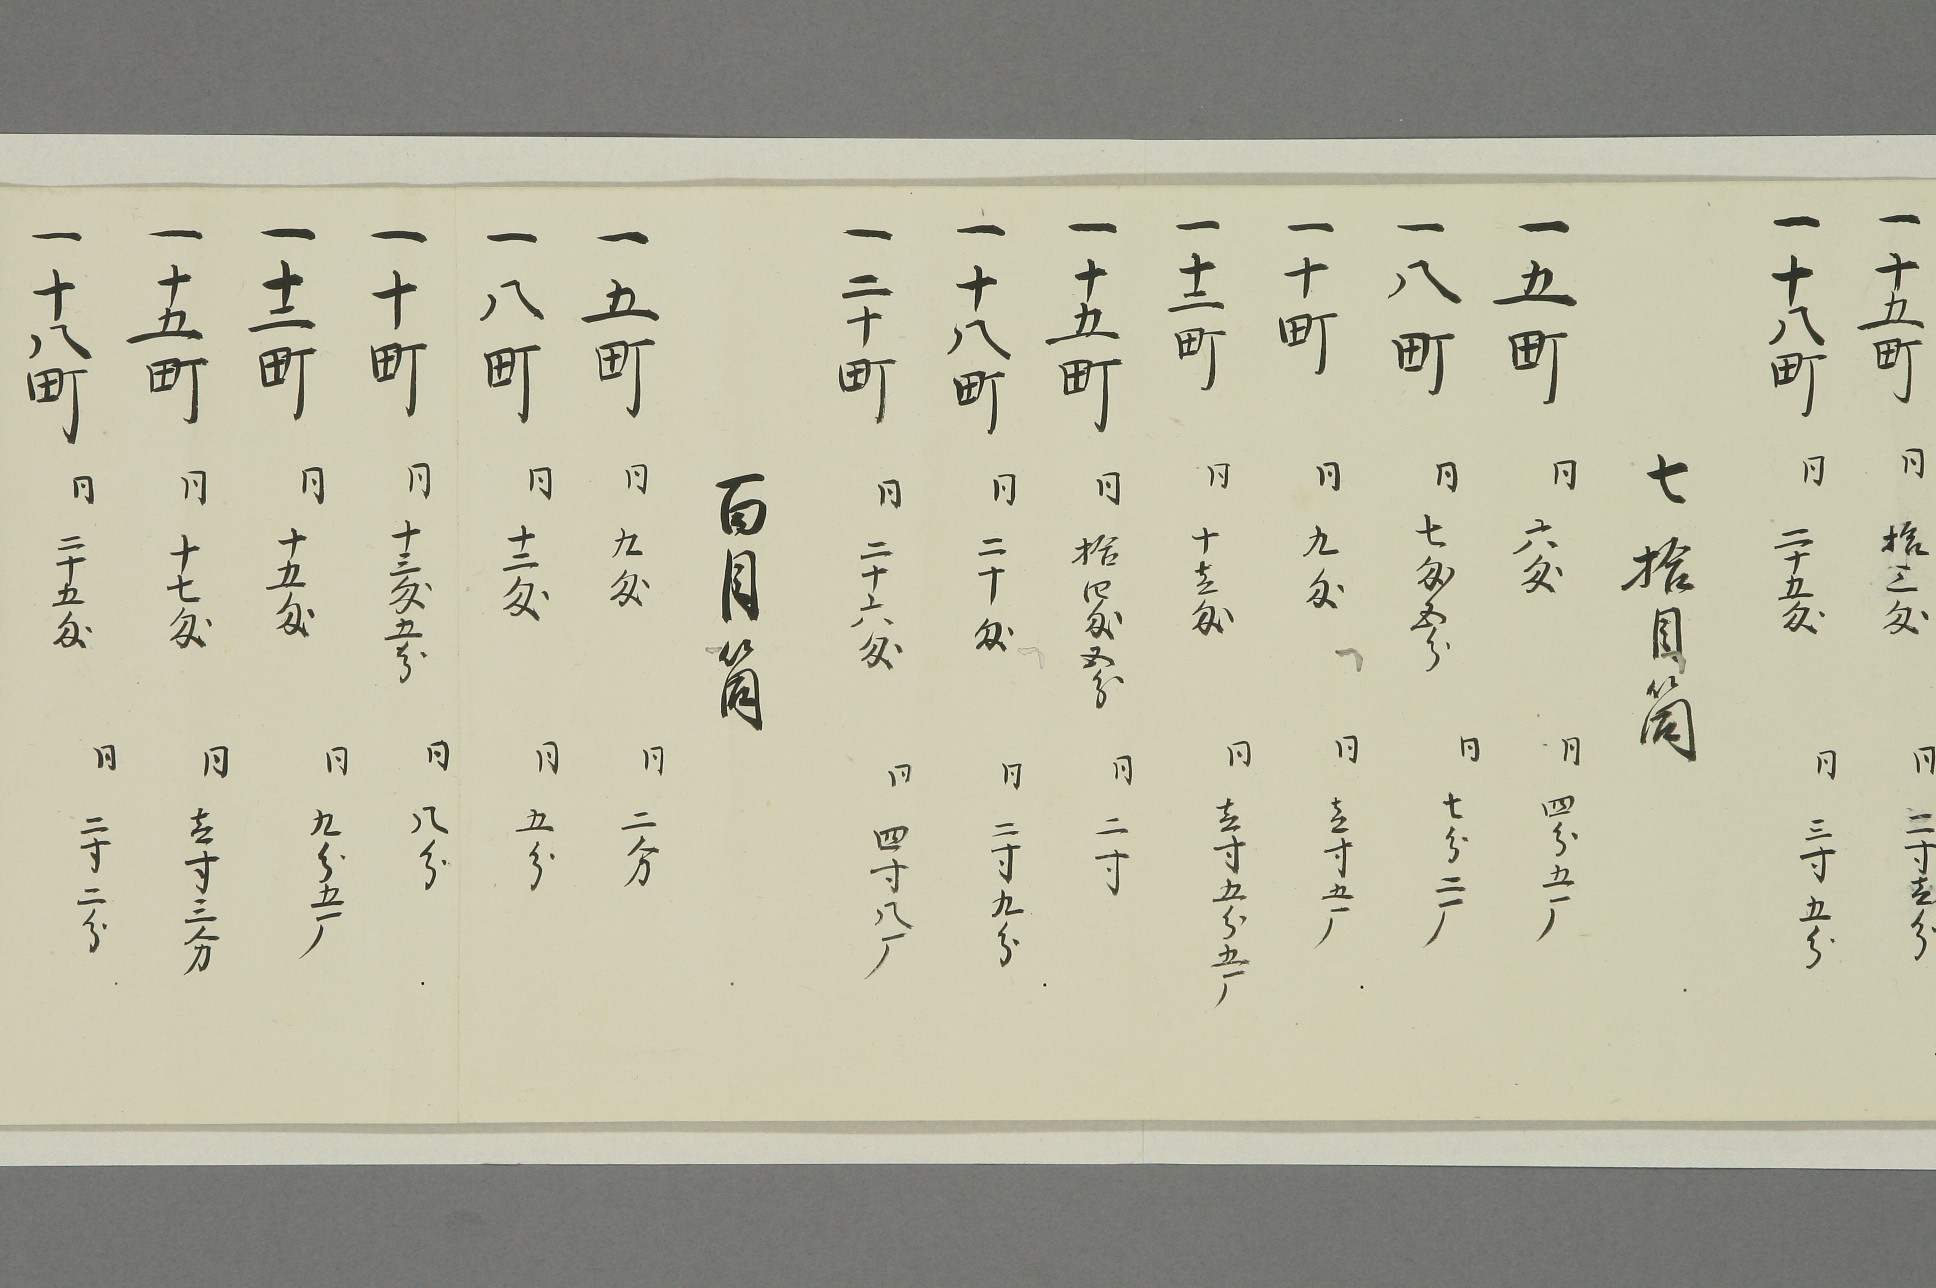 一十五町 同 拾三匁 同 二寸壱分
一十八町 同 二十五匁 同 三寸五分
七拾目筒
一五町 同 六匁 同 四分五厂
一八町 同 七匁五分 同 七分二厂
一十町 同 九匁 同 壱寸五厂
一十二町 同 十壱匁 同 壱寸五分五厂
一十五町 同 拾四匁五分 同 二寸
一十八町 同 二十匁 同 二寸九分
一二十町 同 二十六匁 同 四寸八厂
百目筒
一五町 同 九匁 同 二分
一八町 同 十二匁 同 五分
一十町 同 十三匁五分 同 八分
一十二町 同 十五匁 同 九分五厂
一十五町 同 十七匁 同 壱寸三分
一十八町 同 二十五匁 同 二寸二分